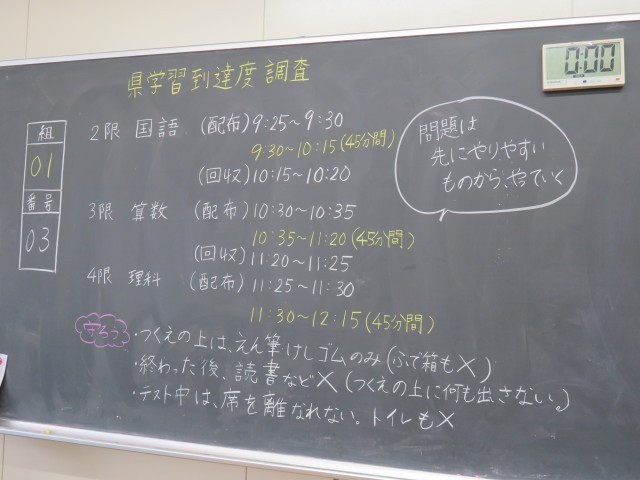 県学習到達度調査
0:00
組
01
番号
03
2限 国語 (配布) 9:25~9:30
9:30~10:15(45分間)
(回収) 10:15~10:20
3限 算数 (配布) 10:30~10:35
10:35~11:20 (45分間)
(回収) 11:20~11:25
4限 理科 (配布) 11:25~11:30
11:30~12:15(45分間)
問題は
先にやりやすい
ものから、やっていく
守ろう
・つくえの上は、えん筆けしゴムのみ(ふで箱も×)
・終わった後、読書など×(つくえの上に何も出さない。)
・テスト中は、席を離なれない。トイレも×